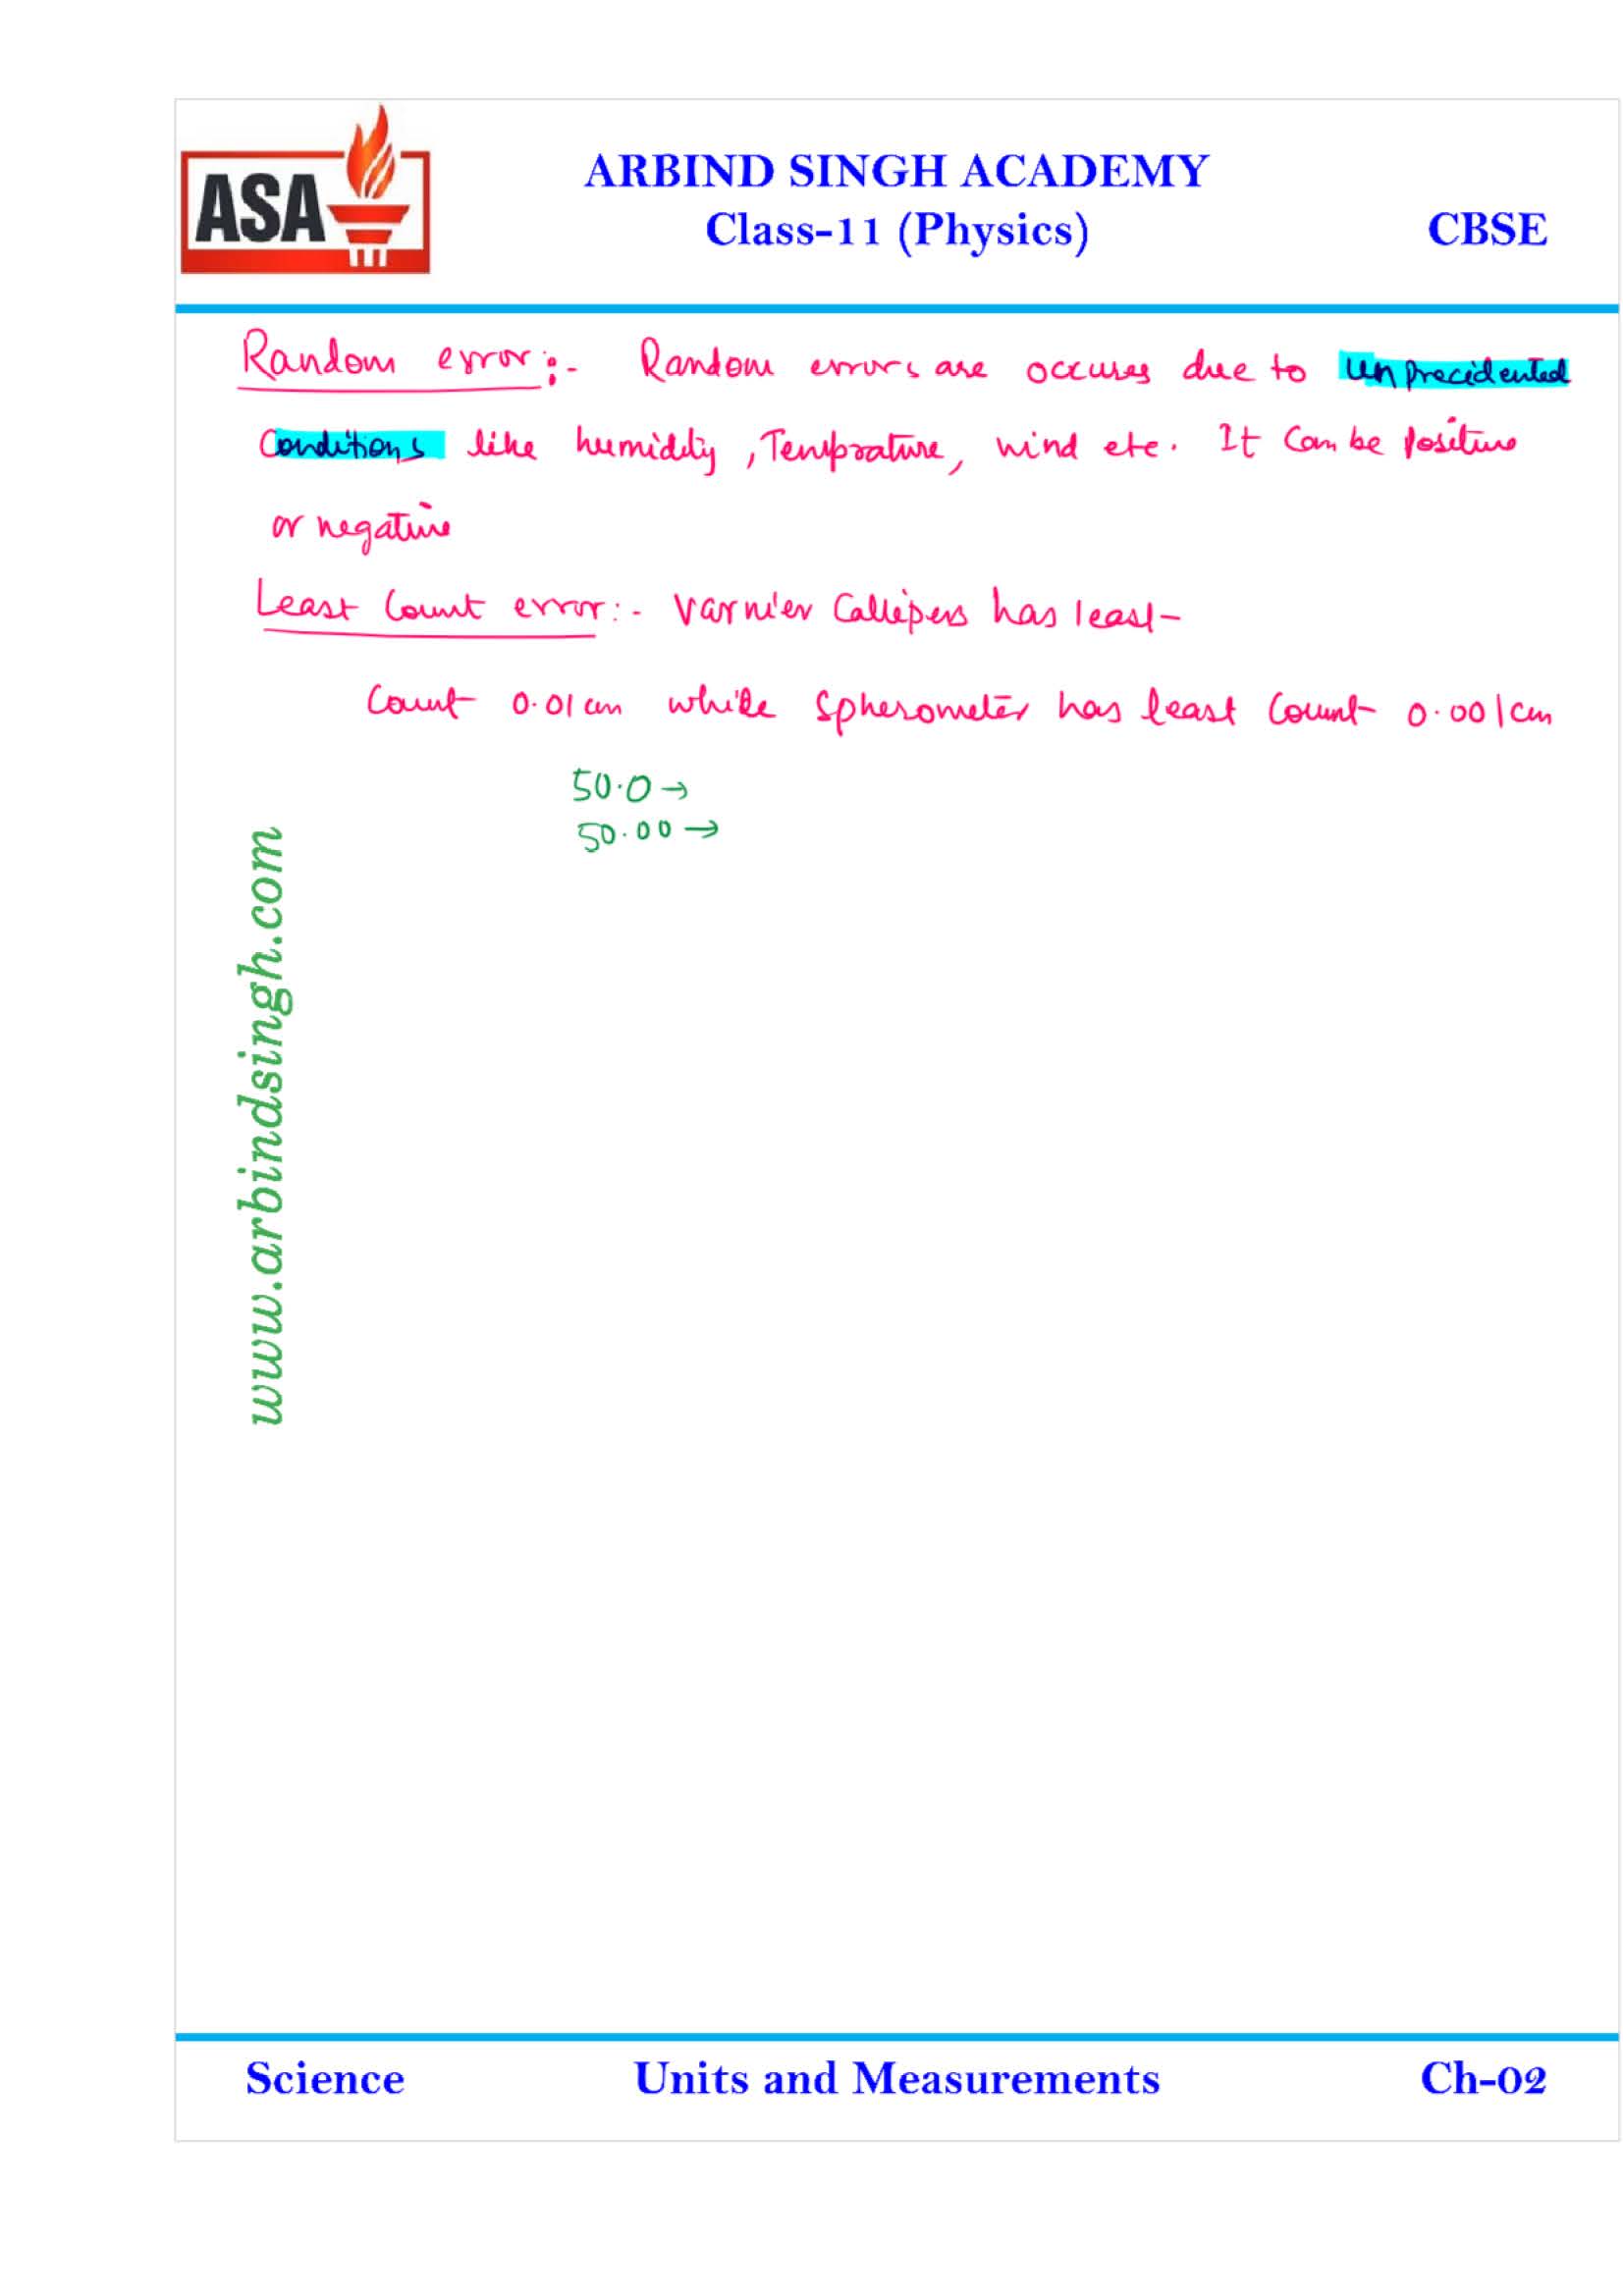 ASA
ARBIND SINGH ACADEMY
Class-11 (Physics)
CBSE
Random error:- Random errors are occures due to unprecidented
Conditions like humidity, Temprature, wind etc. It can be positive
or negative
Least Count error:- Varnier Callipers has least
Count 0.01 cm while Spherometer has least Count 0.001 cm
50.0 →
50.00 →
www.arbindsingh.com
Science
Units and Measurements
Ch-02